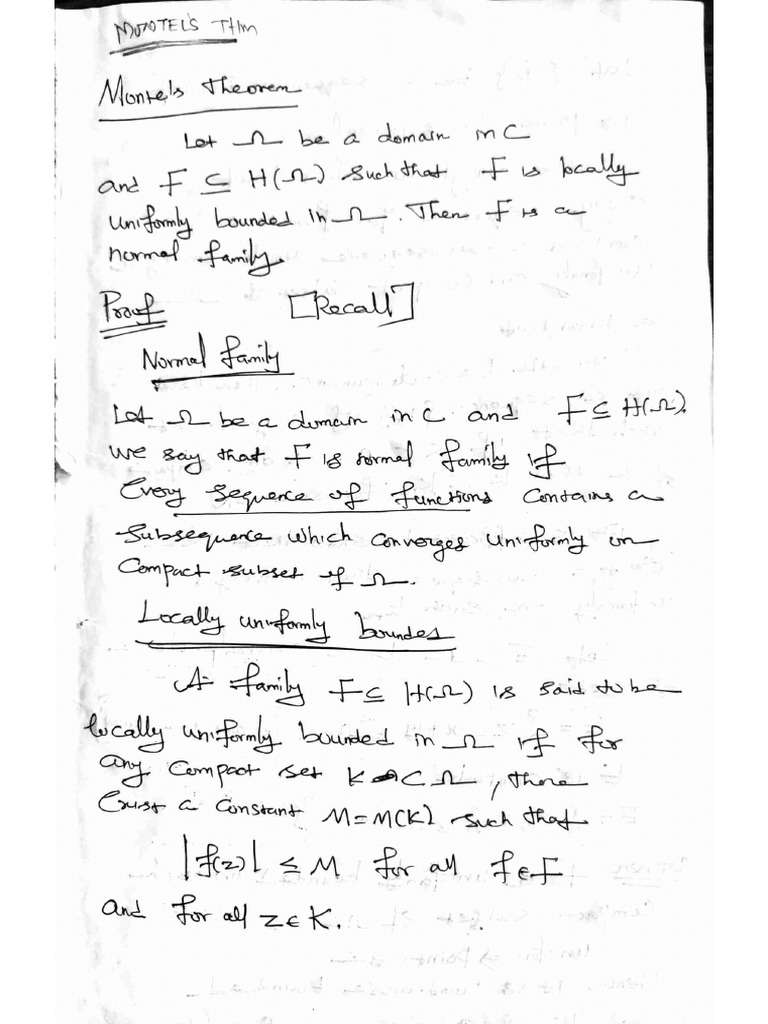 MONTEL'S THM
Montel's Theorem
Let Ω be a domain in C
and F ⊆ H(Ω) such that F is locally
uniformly bounded in Ω. Then F is a
normal family.
Proof [Recall]
Normal family
Let Ω be a domain in C and F ⊆ H(Ω).
we say that F is normal family if
Every sequence of functions contains a
subsequence which converges uniformly on
compact subset of Ω.
Locally uniformly boundes
A family F ⊆ H(Ω) is said to be
locally uniformly bounded in Ω if for
any compact set K ⊂ Ω, there
Exist a constant M = M(K) such that
|f(z)| ≤ M for all f ∈ F
and for all z ∈ K.